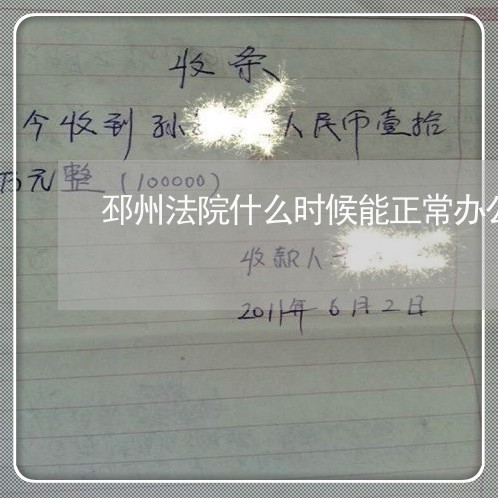 收条
今收到孙 人民币壹拾
万元整(100000)
邳州法院什么时候能正常办公
收款人
2011年6月2日